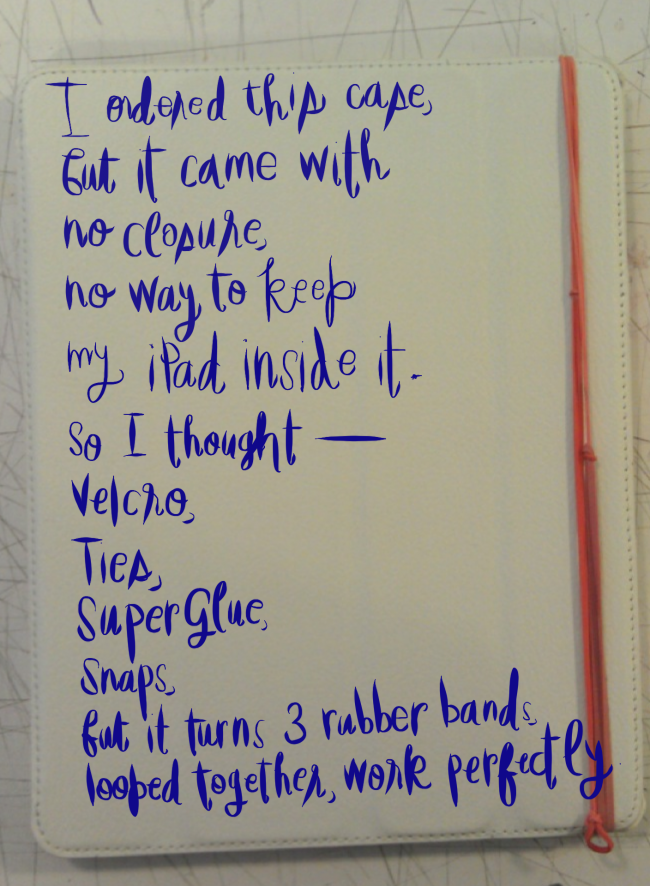 I ordered this case,
But it came with
no closure,
no way to keep
my iPad inside it.
So I thought —
Velcro,
Ties,
SuperGlue,
Snaps,
But it turns 3 rubber bands,
looped together, work perfectly